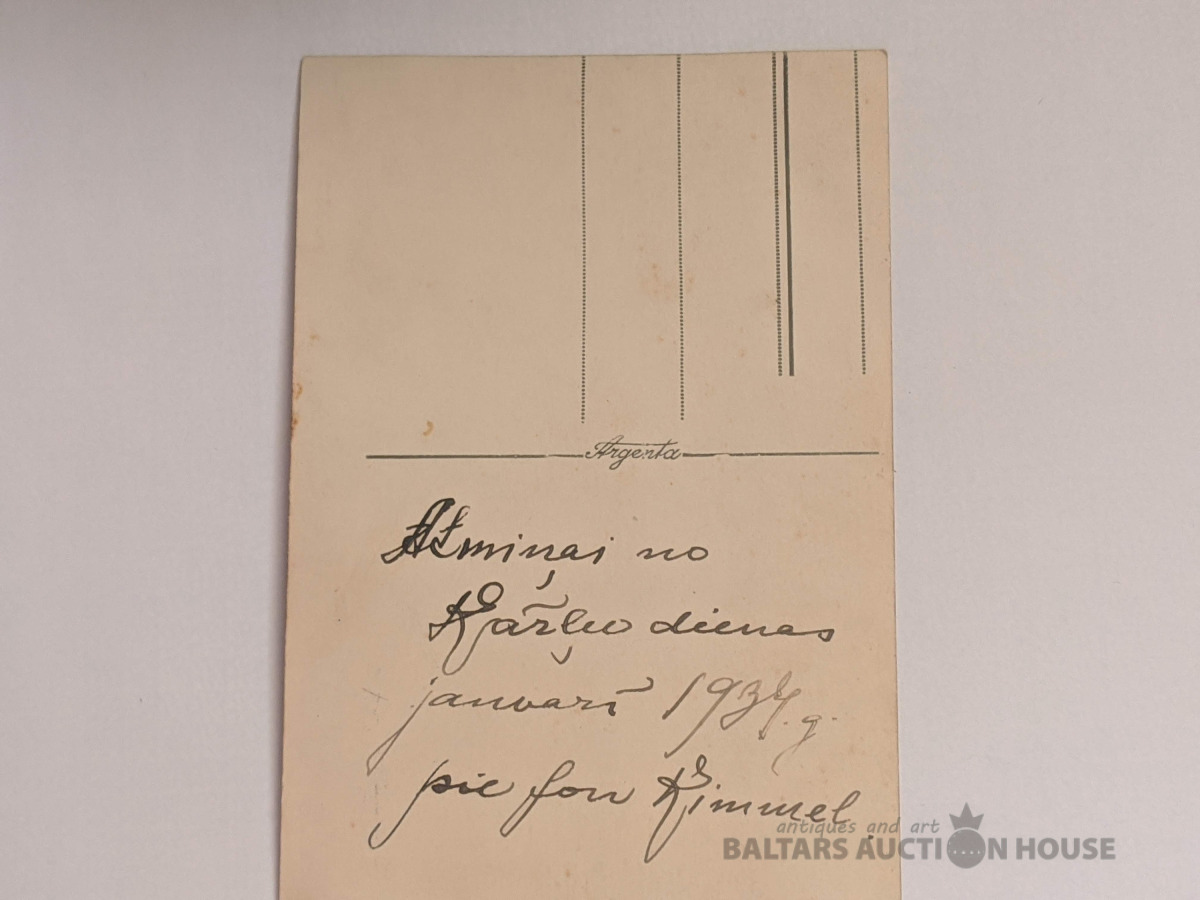 Argenta
Atmiņai no
Kārļu dienas
janvarī 1934. g.
pie fon Kimmel.
antiques and art
BALTARS AUCTION HOUSE